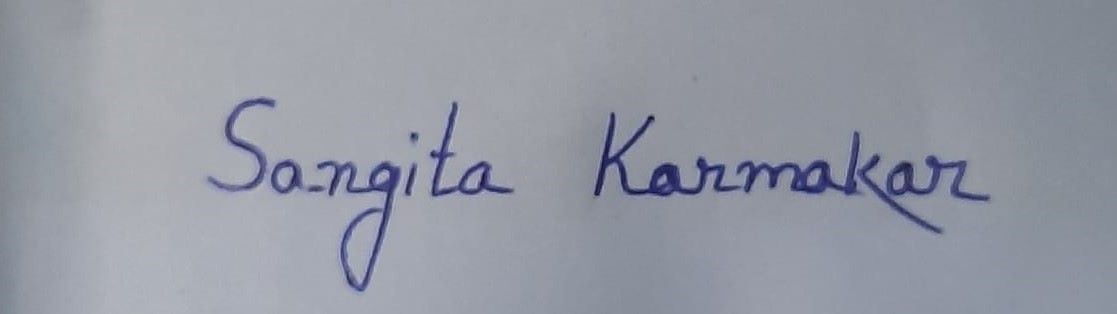 Sangita Karmakar